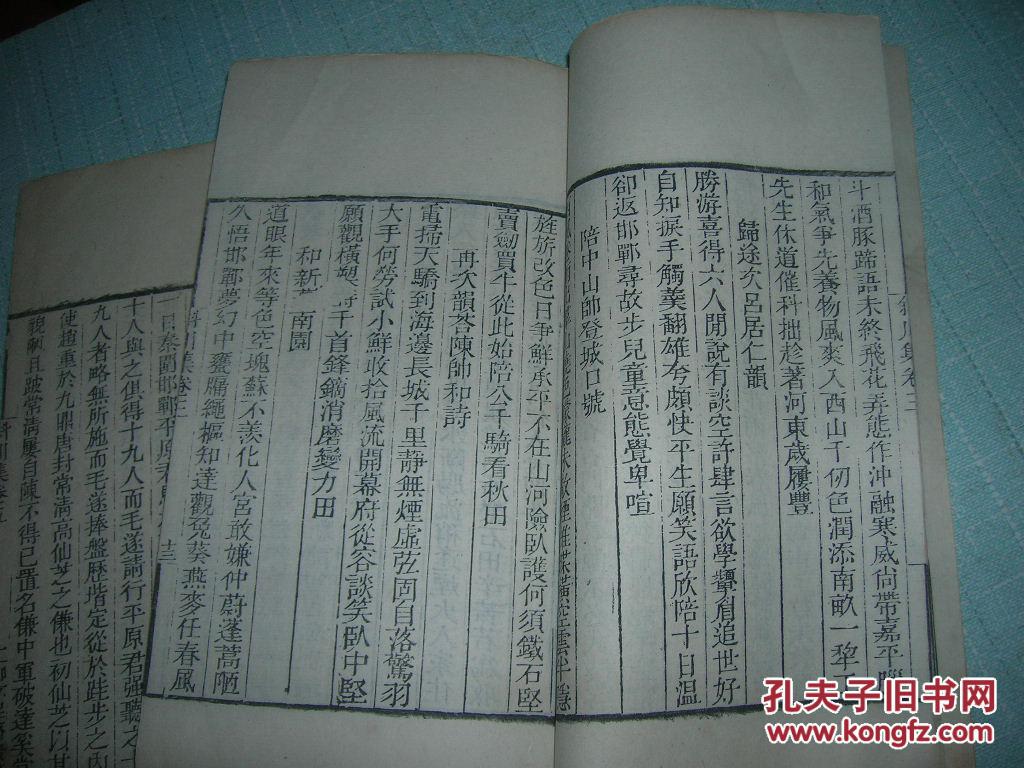 斗酒豚蹄語未終飛花弄態作沖融寒威尚帶嘉平
和氣爭先養物風爽入西山千仞色潤添南畝一犂
先生休道催科拙趁著河東歲屢豐
歸途次呂居仁韻
勝游喜得六人閒說有談空許肆言欲學顰眉追世好
自知捩手觸羹翻雄夸頗快平生願笑語欣陪十日溫
卻返邯鄲尋故步兒童意態覺卑喧
陪中山帥登城口號
旌旂改色日爭鮮承平不在山河險臥護何須鐵石堅
賣劒買牛從此始陪公千騎看秋田
再次韻荅陳帥和詩
電掃天驕到海邊長城千里靜無煙虛弦固自落驚羽
大手何勞試小鮮收拾風流開幕府從容談笑臥中堅
願觀橫槊 千首鋒鏑消磨變力田
和新 南園
道眼年來等色空塊蘇不羨化人宮敢嫌仲蔚蓬蒿陋
久悟邯鄲夢幻中甕牖繩樞知達觀兔葵燕麥任春風
集卷三
十三
圍邯鄲平原君
十人與之俱得十九人而毛遂請行平原君強聽之
九人者略無所施而毛遂捧盤歷揩定從於跬步之內
使趙重於九鼎唐封常清高仙芝之傔也初仙芝以
覘 且跛常清屢自陳不得已置名傔中軍破達奚
孔夫子旧书网
www.kongfz.com